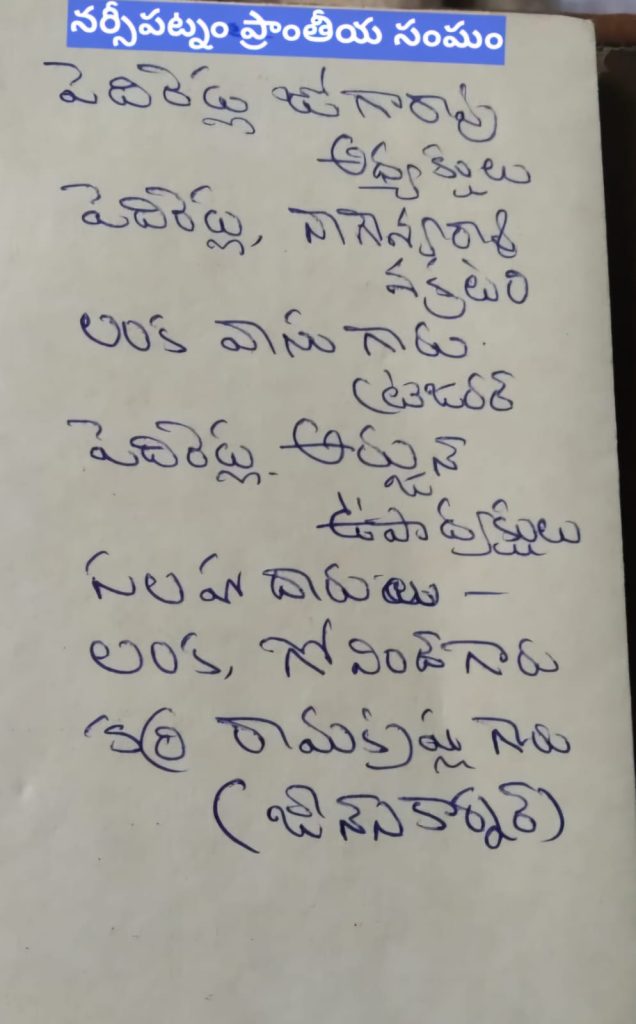 నర్సీపట్నం ప్రాంతీయ సంఘం
పెదిరెడ్ల జోగారావు
అధ్యక్షులు
పెదిరెడ్ల,
లంక వాసు గారు.
ట్రెజరర్
పెదిరెడ్ల. అర్జున్
ఉపాధ్యక్షులు
సలహా దారులు –
లంక, గోవింద్ గారు
కర్రి రామకృష్ణ గారు
(జీన్స్ కార్నర్)